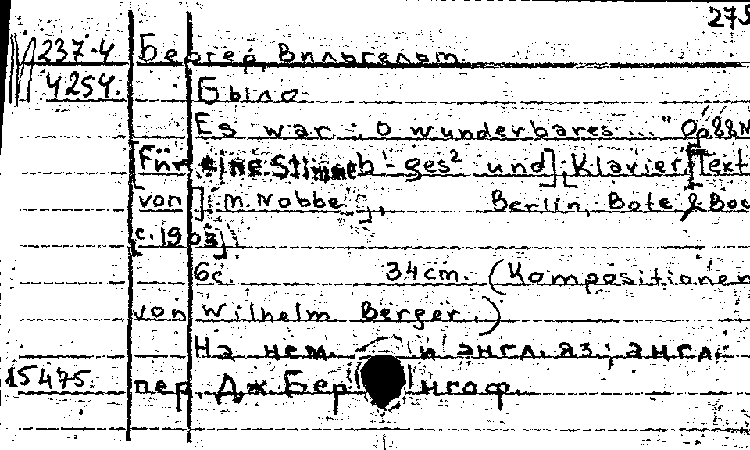 275
237-4 Бергер, Вильгельм.
4254. Было.
Es war: "O wunderbares ..." Op. 88 N
[Für eine Stimme b¹-ges² und], [Klavier] [Text
von] [M. Nobbe], Berlin, Bote & Boc
[c. 1903]
6c. 34cm. (Kompositionen
von Wilhelm Berger.)
На нем. и англ. яз; англ.
15475. пер. Дж. Бер нгоф.